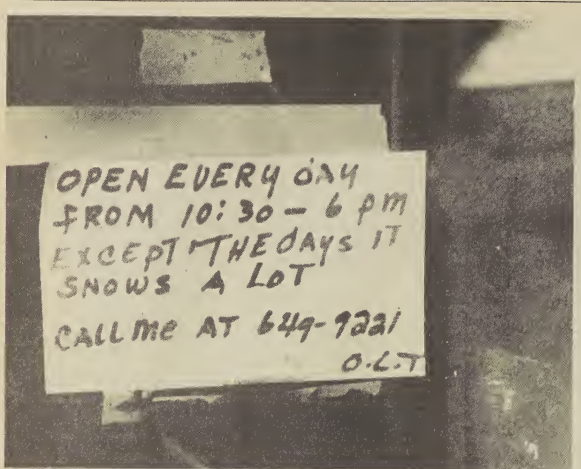 OPEN EVERY dAY
FROM 10:30 - 6 PM
EXCEPT THE dAYS IT
SNOWS A LOT
CALL me AT 649-9221
O.L.T